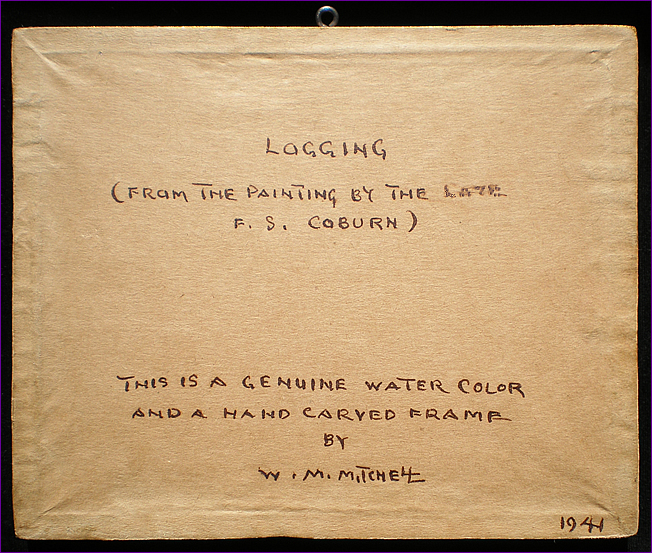 LOGGING
(FROM THE PAINTING BY THE LATE
F. S. COBURN)
THIS IS A GENUINE WATER COLOR
AND A HAND CARVED FRAME
BY
W. M. MITCHELL
1941